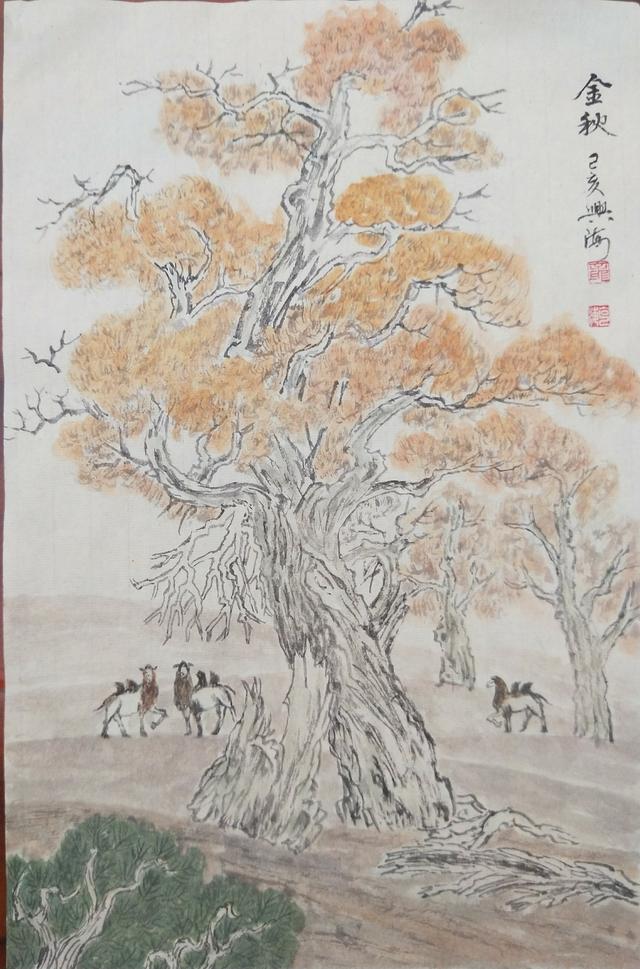 金秋
己亥興海